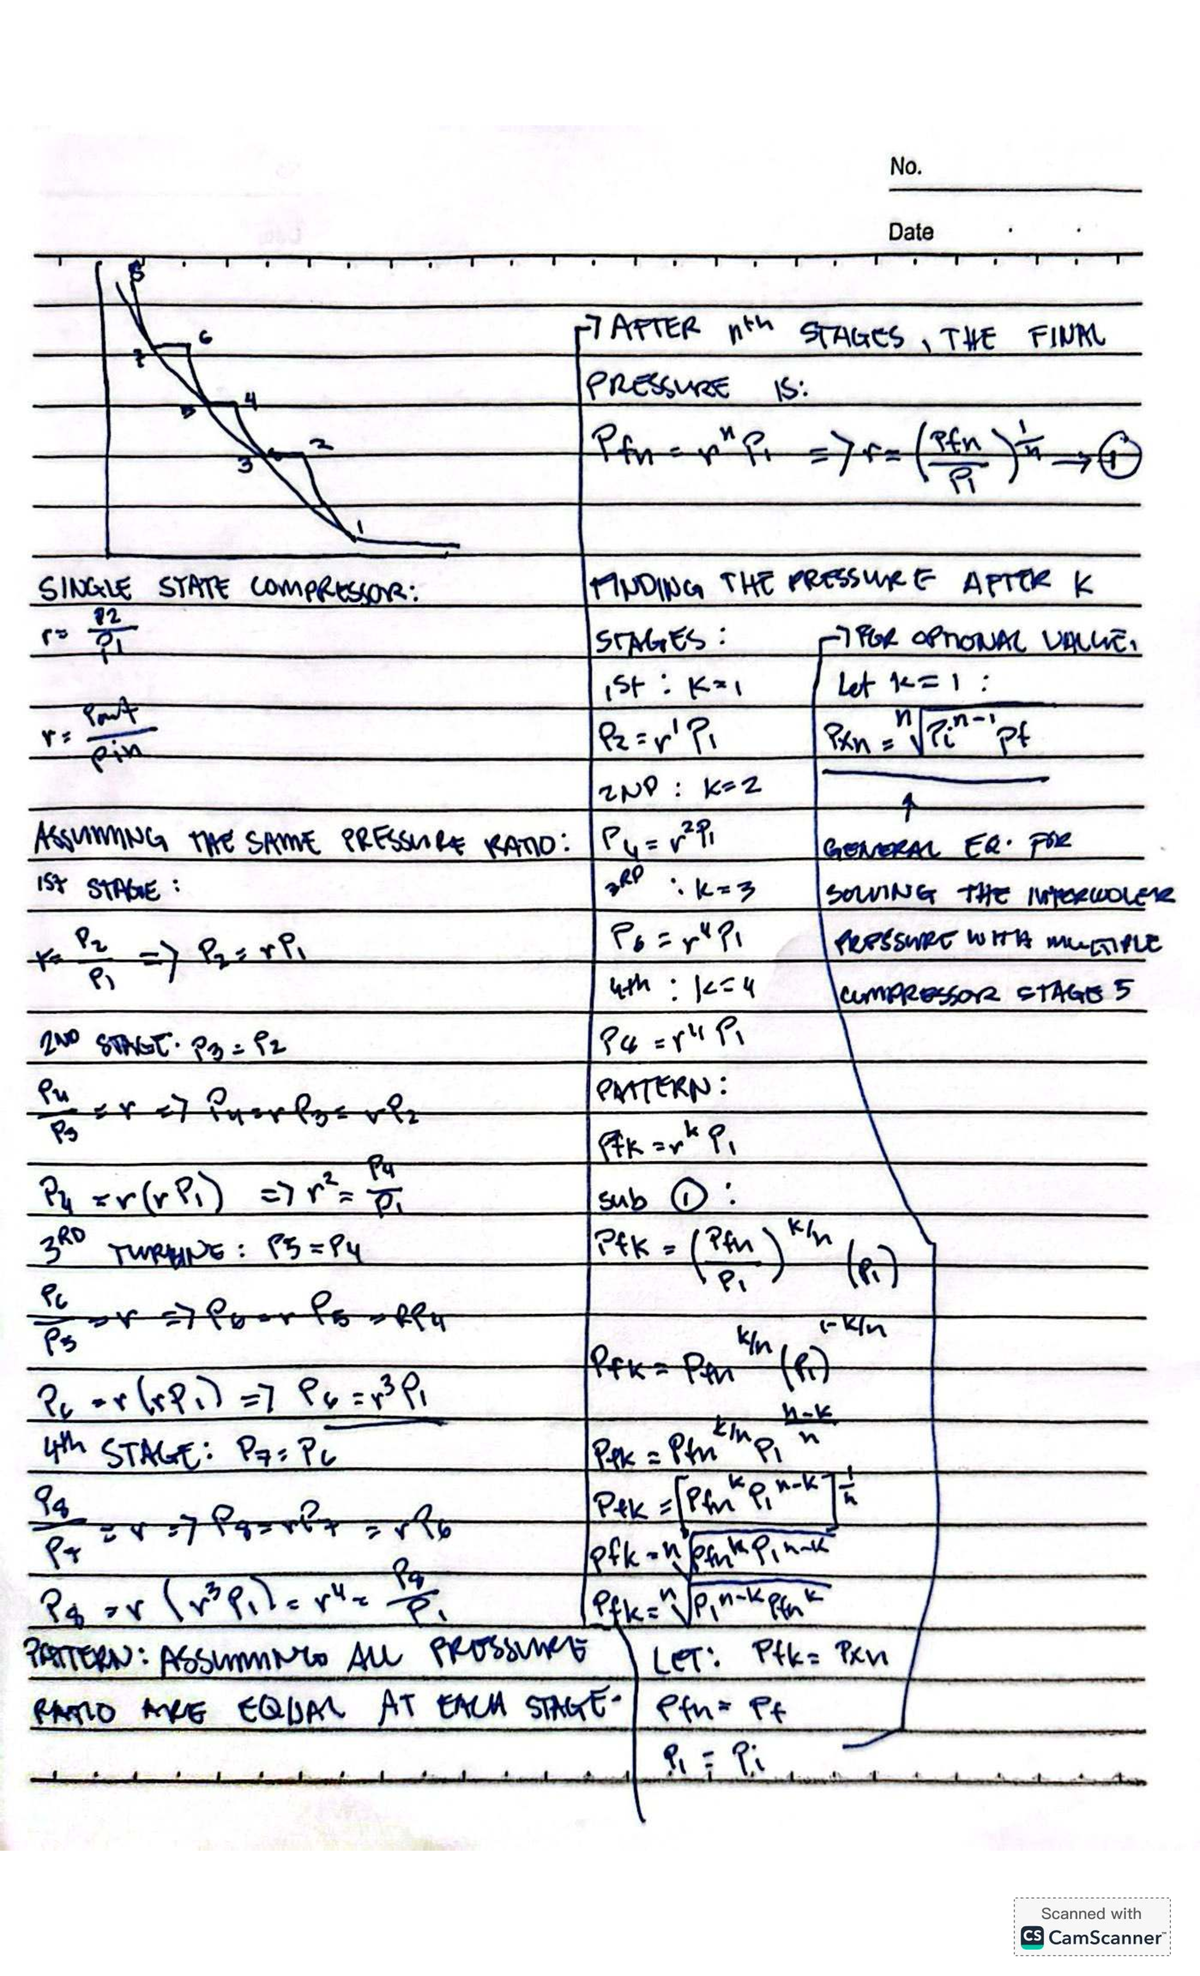 No.
Date
8
6
7
5
4
2
3
1
SINGLE STATE COMPRESSOR:
r = P2/P1
r = Pout/Pin
ASSUMING THE SAME PRESSURE RATIO:
1st STAGE:
r = P2/P1 => P2 = rP1
2ND STAGE: P3 = P2
P4/P3 = r => P4 = rP3 = rP2
P4 = r(rP1) => r² = P4/P1
3RD TURBINE: P5 = P4
P6/P5 = r => P6 = rP5 = RP4
P6 = r(rP1) => P6 = r³P1
4th STAGE: P7 = P6
P8/P7 = r => P8 = rP7 = rP6
P8 = r(r³P1) = r⁴ = P8/P1
PATTERN: ASSUMING ALL PRESSURE
RATIO ARE EQUAL AT EACH STAGE.
→ AFTER nth STAGES, THE FINAL
PRESSURE IS:
Pfn = rⁿP1 => r = (Pfn/P1)^1/n → ①
FINDING THE PRESSURE AFTER K
STAGES:
1st: K=1
P2 = r¹P1
2ND: K=2
P4 = r²P1
3RD: K=3
P6 = r⁴P1
4th: K=4
P8 = r⁴P1
PATTERN:
Pfk = r^k P1
sub ①:
Pfk = (Pfn/P1)^k/n (P1)
Pfk = Pfn^k/n (P1)^1-k/n
Pfk = Pfn^k/n P1^n-k/n
Pfk = [Pfn^k P1^n-k]^1/n
Pfk = n√Pfn^k P1^n-k
Pfk = n√P1^n-k Pfn^k
LET: Pfk = Pxn
Pfn = Pf
P1 = Pi
→ FOR OPTIONAL VALUE,
Let k=1:
Pxn = n√Pi^n-1 Pf
↑
GENERAL EQ. FOR
SOLVING THE INTERCOOLER
PRESSURE WITH MULTIPLE
COMPRESSOR STAGES
Scanned with
CS CamScanner